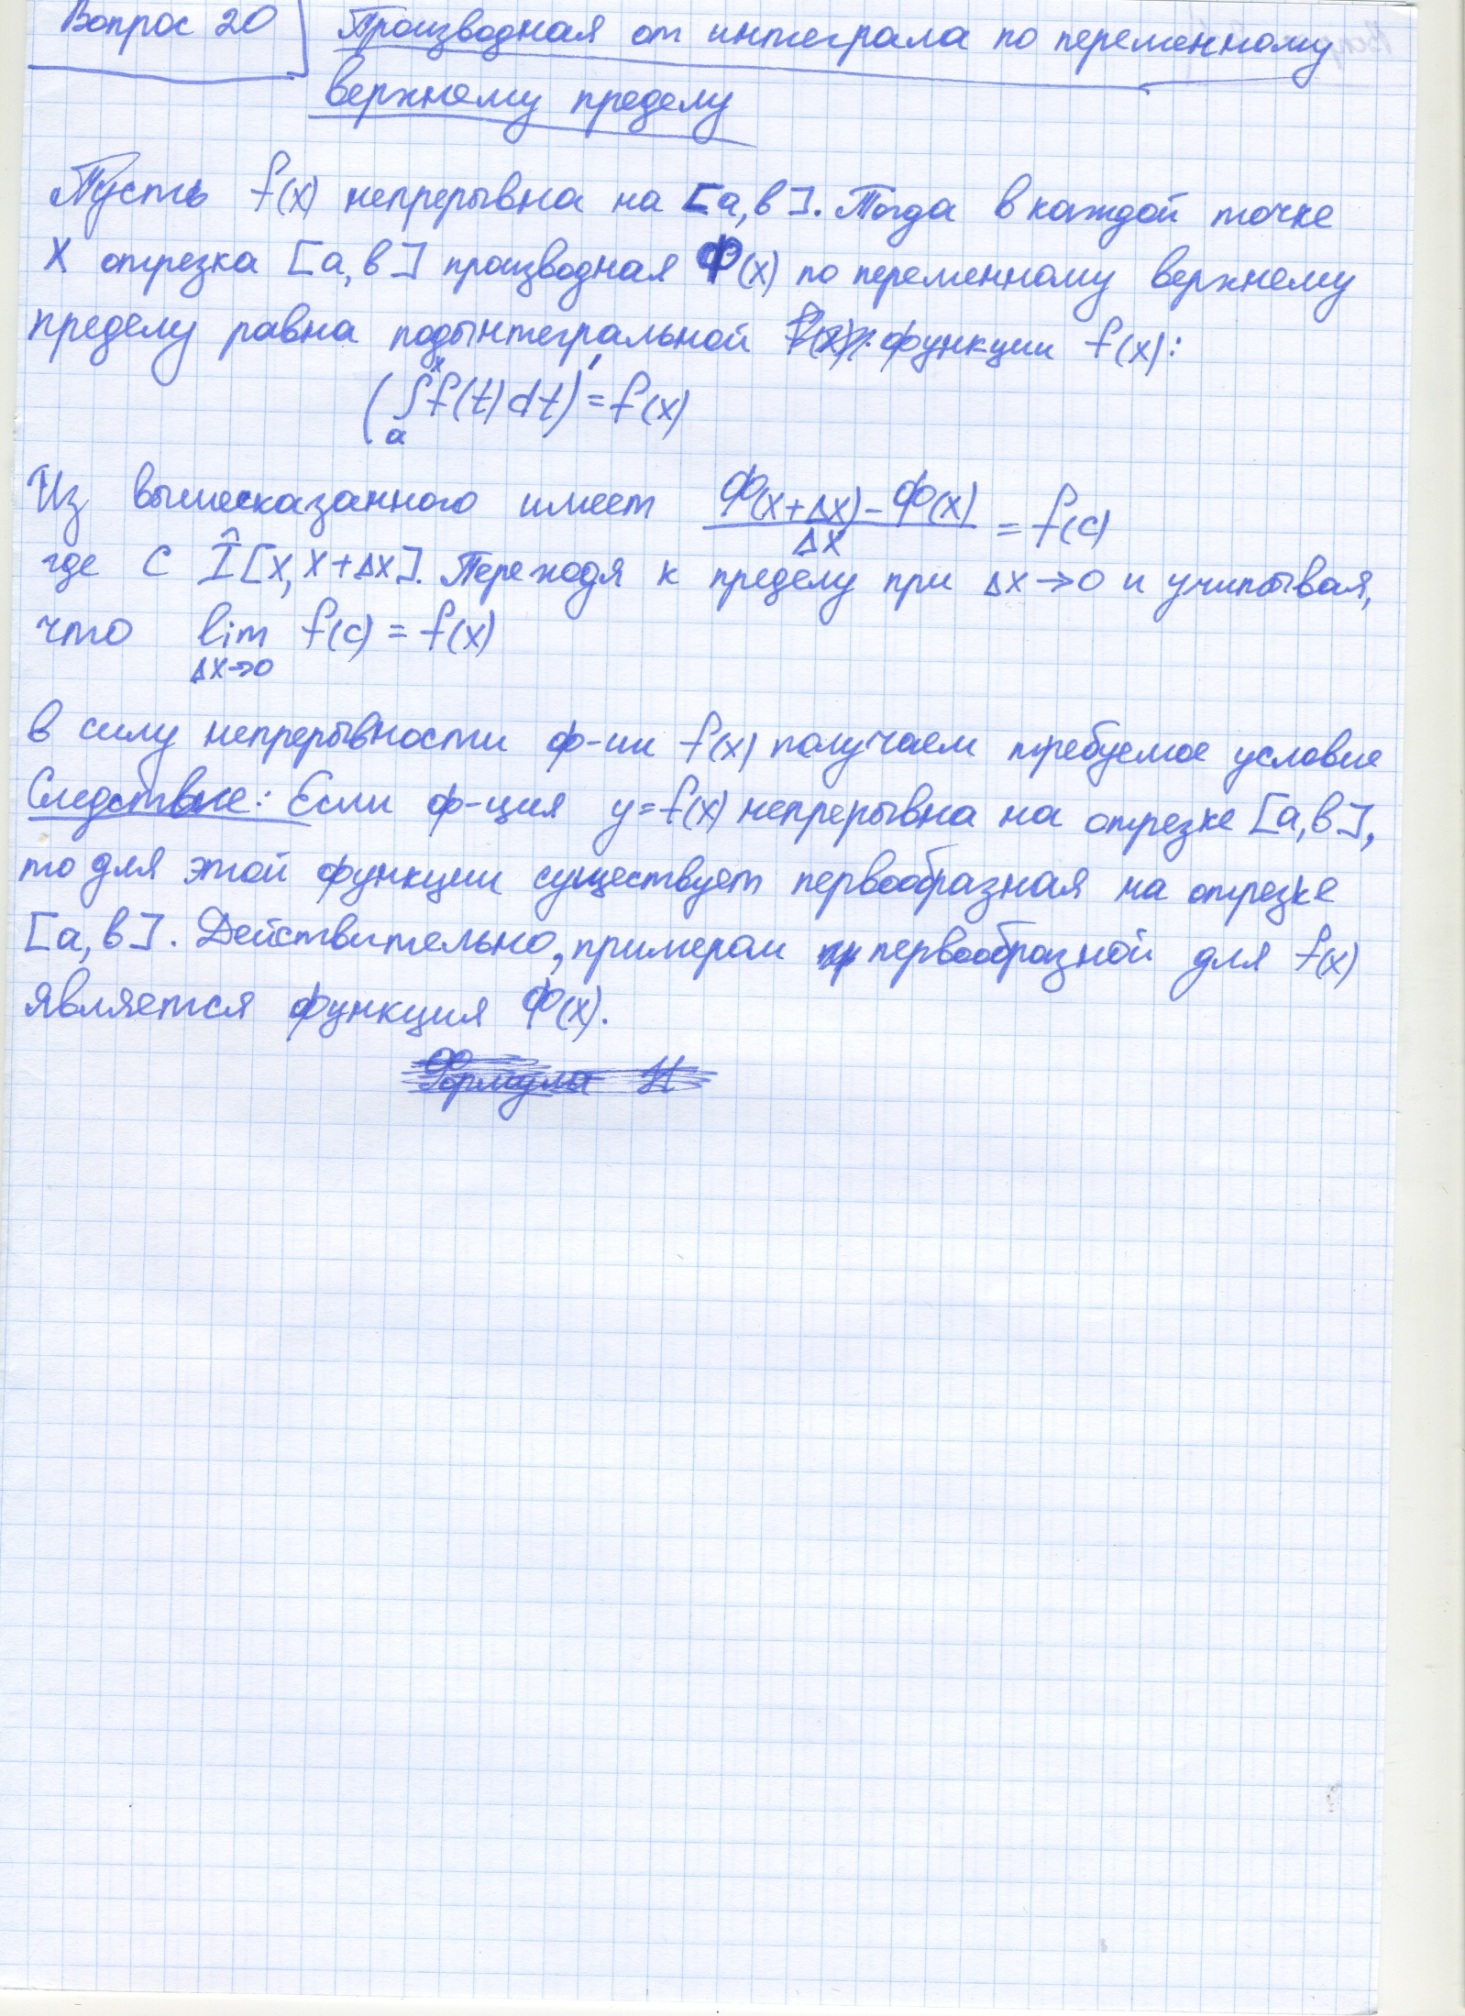 Вопрос 20 Производная от интеграла по переменному
верхнему пределу
Пусть f(x) непрерывна на [a,b]. Тогда в каждой точке
X отрезка [a,b] производная Ф(x) по переменному верхнему
пределу равна подынтегральной функции f(x):
(∫ₐˣ f(t)dt)' = f(x)
Из вышесказанного имеет (Ф(x+Δx)-Ф(x))/Δx = f(c)
где C Î [x, x+Δx]. Переходя к пределу при Δx→0 и учитывая,
что lim f(c) = f(x)
Δx→0
в силу непрерывности ф-ии f(x) получаем требуемое условие
Следствие: Если ф-ция y=f(x) непрерывна на отрезке [a,b],
то для этой функции существует первообразная на отрезке
[a,b]. Действительно, примером первообразной для f(x)
является функция Ф(x).
Формула Н